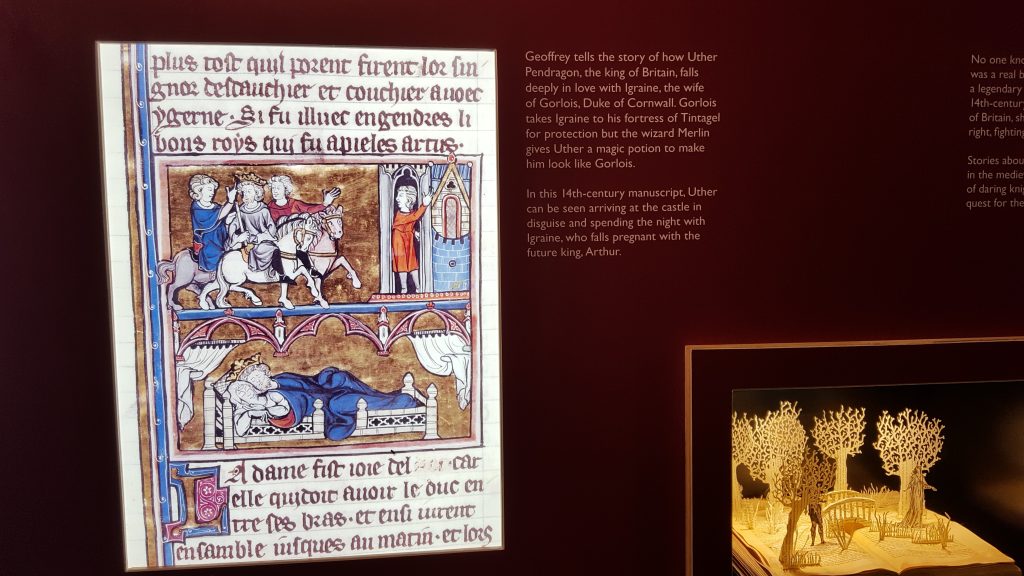 plus tost quil porent firent lor sin
gnor descauchier et couchier avoec
ygerne. Si fu illuec engendres li
bons roys qui fu apieles artus.
LA dame fist ioie del car
elle quidoit avoir le duc en
tre ses bras. et ensi iurent
ensamble iusques au matin. et lors
Geoffrey tells the story of how Uther
Pendragon, the king of Britain, falls
deeply in love with Igraine, the wife
of Gorlois, Duke of Cornwall. Gorlois
takes Igraine to his fortress of Tintagel
for protection but the wizard Merlin
gives Uther a magic potion to make
him look like Gorlois.
In this 14th-century manuscript, Uther
can be seen arriving at the castle in
disguise and spending the night with
Igraine, who falls pregnant with the
future king, Arthur.
No one kno
was a real b
a legendary
14th-century
of Britain, sh
right, fighting
Stories abou
in the medie
of daring knig
quest for the